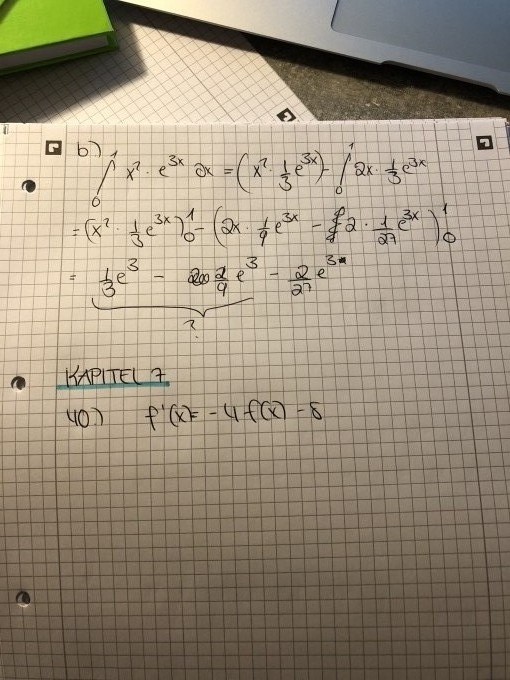 b)
∫₀¹ x² · e^{3x} dx = (x² · 1/3 e^{3x}) - ∫₀¹ 2x · 1/3 e^{3x}
= (x² · 1/3 e^{3x})₀¹ - (2x · 1/9 e^{3x} - 2 · 1/27 e^{3x})₀¹
= 1/3 e³ - 2/9 e³ - 2/27 e³
?
KAPITEL 7
40.) f'(x) = -4 f(x) - 8